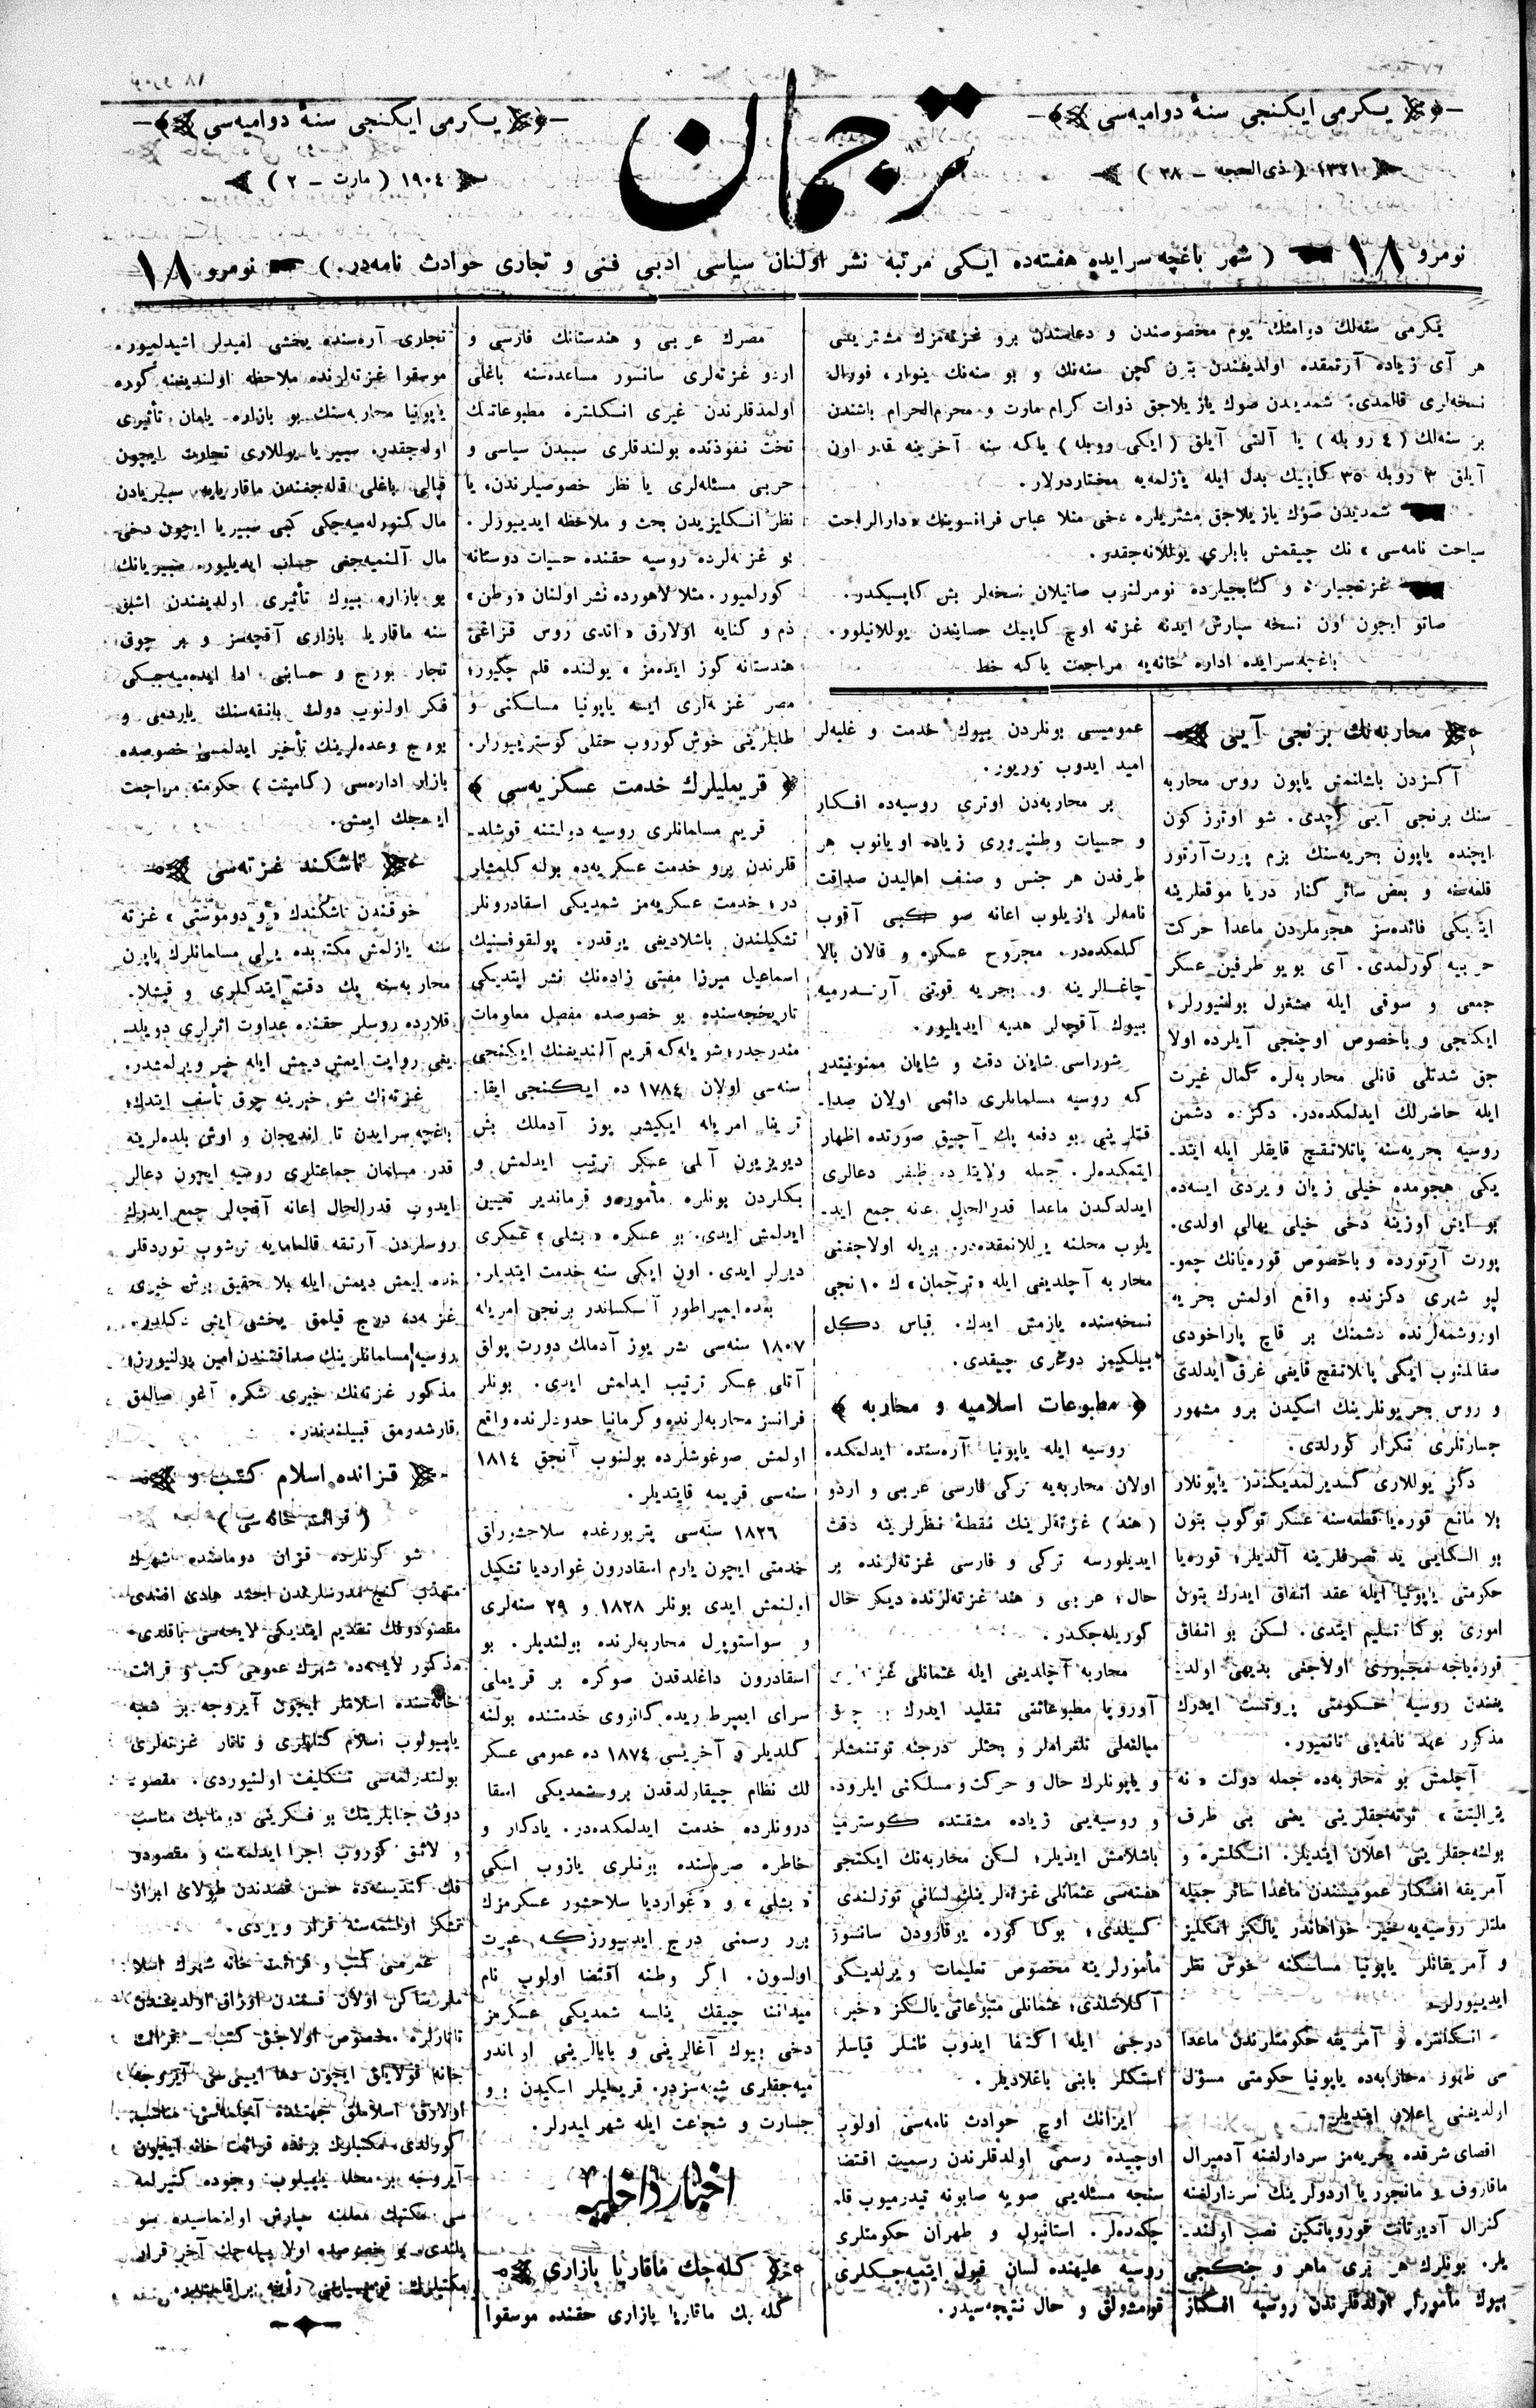 یکرمی ایکنجی سنهٔ دوامیه‌سی
ترجمان
یکرمی ایکنجی سنهٔ دوامیه‌سی
١٣٢١ ( ذی‌الحجه – ٢٨ )
١٩٠٤ ( مارت – ٢ )
نومرو ١٨ ( شهر باغچه سرایده هفته‌ده ایکی مرتبه نشر اولنان سیاسی ادبی فنی و تجاری حوادث نامه‌در. ) نومرو ١٨
یکرمی سنه‌لك دوامنك یوم مخصوصندن و دعاسندن برو غزته‌مزك مشتریسی
هر آی زیاده آرتمقده اولدیغندن بتون کچن سنه‌نك و بو سنه‌نك ینوار، فورال
نسخه‌لری قالمدی. شمدیدن صوك یازیلاجق ذوات کرام مارت و محرم‌الحرام باشندن
بر سنه‌لك ( ٤ روبله ) یا آلتی آیلق ( ایکی روبله ) یاکه سنه آخرینه قدر اون
آیلق ٣ روبله ٣٥ کاپیك بدل ایله یازلمه‌یه مختاردرلار.
شمدیدن صوك یازیلاجق مشتریلره دخی منلا عباس فرانسوینك «دارالراحت
سیاحت نامه‌سی» نك چیقمش بابلری یوللانه‌جقدر.
غزته‌جیلرده و کتابجیلرده نومرلنوب صاتیلان نسخه‌لر بش کاپیکدر.
صاتو ایچون اون نسخه سپارش ایدنه غزته اوچ کاپیك حسابندن یوللانیلور.
باغچه‌سرایده اداره خانه‌یه مراجعت یاکه خط
محاربه‌نك برنجی آیی
آکسزدن باشلنمش یاپون روس محاربه
سنك برنجی آیی کچدی. شو اوتوز کون
ایچنده یاپون بحریه‌سنك بزم پورت آرتور
قلعه‌سنه و بعض سائر کنار دریا موقعلرینه
ایتدیکی فائده‌سز هجوملردن ماعدا حرکت
حربیه کورلمدی. آی بویو طرفین عسکر
جمعی و سوقی ایله مشغول بولنیورلر؛
ایکنجی و باخصوص اوچنجی آیلرده اولا
جق شدتلی قانلی محاربه‌لره کمال غیرت
ایله حاضرلك ایدلمکده‌در. دکزده دشمن
روسیه بحریه‌سنه پاتلاتقیچ قایقلر ایله ایتد-
یکی هجومده خیلی زیان ویردی ایسه‌ده
بو ایش اوزینه دخی خیلی بهالی اولدی.
پورت آرتورده و باخصوص قوره‌یانك چمو-
لپو شهری دکزنده واقع اولمش بحریه
اوروشمه‌لرنده دشمنك بر قاچ پاراخودی
صقالمنوب ایکی پاتلاتقیچ قایغی غرق ایدلدی
و روس بحریونلرینك اسکیدن برو مشهور
جسارتلری تکرار کورلدی.
دکز یوللاری کسدیرلمدیکندن یاپونلار
بلا مانع قوره‌یا قطعه‌سنه عسکر توکوب بتون
بو الکایی ید تصرفلرینه آلدیلر؛ قوره‌یا
حکومتی یاپونیا ایله عقد اتفاق ایدرك بتون
اموری بوکا تسلیم ایتدی. لکن بو اتفاق
قوره‌یاجه مجبوری اولاجغی بدیهی اولد-
یغندن روسیه حکومتی پروتست ایدرك
مذکور عهد نامه‌یی تانمیور.
آچلمش بو محاربه‌ده جمله دولت «نه
یترالیتت» توته‌جقلرینی یعنی بی طرف
بولنه‌جقلرینی اعلان ایتدیلر. انکلتره و
آمریقه افکار عمومیسندن ماعدا سائر جمله
ملتلر روسیه‌یه خیر خواهاندر یالکز انکلیز
و آمریقانلر یاپونیا مساسکنه خوش نظر
ایدییورلر.
انکلتره و آمریقه حکومتلرندن ماعدا
سی ظهور محاربه‌ده یاپونیا حکومتی مسؤل
اولدیغنی اعلان ایتدیلر.
اقصای شرقده بحریه‌مز سردارلغنه آدمیرال
ماقاروف و مانجوریا اردولرینك سردارلغنه
کنرال آدیوتانت قوروپاتکین نصب اولند-
یلر. بونلرك هر بری ماهر و جنکجی
بیوك مأمورلر اولدقلرندن روسیه افکار
عمومیسی بونلردن بیوك خدمت و غلبه‌لر
امید ایدوب توریور.
بر محاربه‌دن اوتری روسیه‌ده افکار
و حسیات وطنپروری زیاده اویانوب هر
طرفدن هر جنس و صنف اهالیدن صداقت
نامه‌لر یازیلوب اعانه صو کبی آقوب
کلمکده‌در. مجروح عسکره و قالان بالا
چاغه‌لرینه و بحریه قوتنی آرتدرمیه
بیوك آقچه‌لر هدیه ایدیلیور.
شوراسی شایان دقت و شایان ممنونیتدر
که روسیه مسلمانلری دائمی اولان صدا-
قتلرینی بو دفعه پك آچیق صورتده اظهار
ایتمکده‌لر. جمله ولایتلرده ظفر دعالری
ایدلدکدن ماعدا قدرالحال اعانه جمع اید-
یلوب محلنه یوللانمقده‌در. بویله اولاجغنی
محاربه آچلدیغی ایله «ترجمان» ك ١٠ نجی
نسخه‌سنده یازمش ایدك. قیاس دکل
بیلکیمز دوغری چیقدی.
مطبوعات اسلامیه و محاربه
روسیه ایله یاپونیا آره‌سنده ایدلمکده
اولان محاربه‌یه ترکی فارسی عربی و اردو
(هند) غزته‌لرینك نقطهٔ نظرلرینه دقت
ایدیلورسه ترکی و فارسی غزته‌لرنده بر
حال؛ عربی و هند غزته‌لرنده دیکر حال
کوریله‌جکدر.
محاربه آچلدیغی ایله عثمانلی غزته‌لری
آوروپا مطبوعاتنی تقلید ایدرك
مبالغه‌لی تلغرافلر و بحثلر درجنه توتنمشلر
و یاپونلرك حال و حرکت و مسلکنی ایلرود-
و روسیه‌یی زیاده مشقتده کوسترمیه
باشلامش ایدیلر؛ لکن محاربه‌نك ایکنجی
هفته‌سی عثمانلی غزته‌لرینك لسانی توزلندی
کسیلدی؛ بوکا کوره یوقارودن سانسور
مأمورلرینه مخصوص تعلیمات ویرلدیکی
آکلاشلدی؛ عثمانلی مطبوعاتی یالکز «خبر»
درجی ایله اکتفا ایدوب ظنلر قیاسلر
استکلر بابنی باغلادیلر.
ایرانك اوچ حوادث نامه‌سی اولوب
اوچیده رسمی اولدقلرندن رسمیت اقتضا
سنجه مسئله‌یی صویه صابونه تیدرمیوب قلم
چکه‌ده‌لر. استانپول و طهران حکومتلری
روسیه علیهنده لسان قبول ایتمیه‌جکلری
قومشولق و حال نتیجه‌سیدر.
مصرك عربی و هندستانك فارسی و
اردو غزته‌لری سانسور مساعده‌سنه باغلی
اولمدقلرندن غیری انکلتره مطبوعاتنك
تحت نفوذنده بولندقلری سببدن سیاسی و
حربی مسئله‌لری یا نظر خصوصیلرندن، یا
نظر انکلیزیدن بحث و ملاحظه ایدییورلر.
بو غزته‌لرده روسیه حقنده حسیات دوستانه
کورلمیور. مثلا لاهورده نشر اولنان «وطن»
ذم و کنایه اولارق «اندی روس قزاغی
هندستانه کوز ایده‌مز» یولنده قلم چکیور؛
مصر غزته‌لری ایسه یاپونیا مسلکنی و
طلبلرینی خوش کوروب حقلی کوستریورلر.
قریملیلرك خدمت عسکریه‌سی
قریم مسلمانلری روسیه دولتنه قوشلد-
قلرندن برو خدمت عسکریه‌ده بوله کلمشلر
در؛ خدمت عسکریه‌مز شمدیکی اسقادرونلر
تشکیلندن باشلادیغی یوقدر. پولقوفنیك
اسماعیل میرزا مفتی زاده‌نك نشر ایتدیکی
تاریخچه‌سنده بو خصوصده مفصل معلومات
مندرجدر؛ شویله‌که قریم آلندیغنك ایکنجی
سنه‌سی اولان ١٧٨٤ ده ایکنجی ایقا-
ترینا امریله ایکیشر یوز آدملك بش
دیویزیون آتلی عسکر ترتیب ایدلمش و
بکلردن بونلره مأمور و قوماندیر تعیین
ایدلمش ایدی. بو عسکره «بشلی» عسکری
دیرلر ایدی. اون ایکی سنه خدمت ایتدیلر.
بعده ایمپراطور آلکساندر برنجی امریله
١٨٠٧ سنه‌سی بشر یوز آدملك دورت پولق
آتلی عسکر ترتیب ایدلمش ایدی. بونلر
فرانسز محاربه‌لرنده و کرمانیا حدودلرنده واقع
اولمش صوغوشلرده بولنوب آنجق ١٨١٤
سنه‌سی قریمه قایتدیلر.
١٨٢٦ سنه‌سی پتربورغده سلاحشوراق
خدمتی ایچون یارم اسقادرون غواردیا تشکیل
اولنمش ایدی بونلر ١٨٢٨ و ٢٩ سنه‌لری
و سواستوپول محاربه‌لرنده بولندیلر. بو
اسقادرون داغلدقدن صوکره بر قریملی
سرای ایمپراطوریده کانوی خدمتنده بولنه
کلدیلر و آخریسی ١٨٧٤ ده عمومی عسکر
لك نظام چیقارلدقدن برو شمدیکی اسقا
درونلرده خدمت ایدلمکده‌در. یادکار و
خاطره صره‌سنده بونلری یازوب اسکی
«بشلی» و «غواردیا سلاحشور عسکرمزك
برر رسمنی درج ایدییورزکه عبرت
اولسون. اکر وطنه اقتضا اولوب نام
میداننا چیقك یناسه شمدیکی عسکرمز
دخی بیوك آغالرینی و بابالرینی اوتاندر
میه‌جقلری شبهه‌سزدر. قریملیلر اسکیدن برو
جسارت و شجاعت ایله شهر ایدرلر.
اخبار داخلیه
کله‌جك ماقاریا بازاری
کله‌جك ماقاریا بازاری حقنده موسقوا
تجاری آره‌سنده یخشی امیدلر اشیدلمیور.
موسقوا غزته‌لرنده ملاحظه اولندیغنه کوره
یاپونیا محاربه‌سنك بو بازاره یامان تأثیری
اوله‌جقدر. سیبریا یوللاری تجارت ایچون
قپالی باغلی قاله‌جغندن ماقاریایه سیبریادن
مال کتورله‌میه‌جکی کبی سیبریا ایچون دخی
مال آلنمیه‌جغی حساب ایدیلیور. سیبریانك
بو بازاره بیوك تأثیری اولدیغندن اشبو
سنه ماقاریا بازاری آقچه‌سز و بر چوق
تجار بورج و حسابنی ادا ایده‌میه‌جکی
فکر اولنوب دولت بانقه‌سنك یاردمی و
بورج وعده‌لرینك تأخیر ایدلمسی خصوصده
بازار اداره‌سی (کامیتت) حکومته مراجعت
ایده‌جك ایمش.
تاشکند غزته‌سی
خوقندن تاشکندك «روسوموستی» غزته
سنه یازلمش مکتوبده یرلی مسلمانلرك یاپون
محاربه‌سنه پك دقت ایتدکلری و قیشلا-
قلارده روسلر حقنده عداوت اثرلری دویلد-
یغی روایت ایمش دیمش ایله خبر ویرلمشدر.
غزته‌نك شو خبرینه چوق تأسف ایتدك؛
باغچه سرایدن تا اندیجان و اوش بلده‌لرینه
قدر مسلمان جماعتلری روسیه ایچون دعالر
ایدوب قدرالحال اعانه آقچه‌لر جمع ایدرك
روسلردن آرتقه قالمامایه تروشوب توردقلر
نده ایمش دیمش ایله بلا تحقیق بوش خبری
غزته‌ده درج قیلمق یخشی ایش دکلدر.
روسیه مسلمانلرینك صداقتندن امین بولنیورز؛
مذکور غزته‌نك خبری شکره آغو صالمق
قارشدرمق قبیلندندر.
قزانده اسلام کتب و
( قرائت خانه‌سی )
شو کونلرده قزان دوماسنده شهرك
متهذب کنج مدرسلرندن احمد هادی افندی
مقصودوفك تقدیم ایتدیکی لایحه‌سی باقلدی.
مذکور لایحه‌ده شهرك عمومی کتب و قرائت
خانه‌سنده اسلاملر ایچون آیروجه بر شعبه
یاپیلوب اسلام کتابلری و تاتار غزته‌لری
بولندرلمه‌سی تکلیف اولنیوردی. مقصود
دوف جنابلرینك بو فکرینی دوماده مناسب
و لائق کوروب اجرا ایدلمه‌سنه و مقصودو
فك کندیسنه‌ده حسن قصدندن طولای ابراز
تشکر اولنمه‌سنه قرار ویردی.
عمومی کتب و قرائت خانه شهرك اسلا
ملر ساکن اولان قسمندن اوزاق اولدیغندن
تاتارلره مخصوص اولاجق کتب – قرائت
خانه قولایلق ایچون دها ایییسی آیروجه
اولارق اسلاملق جهتنده آچلمه‌سی مناسب
کورلدی.